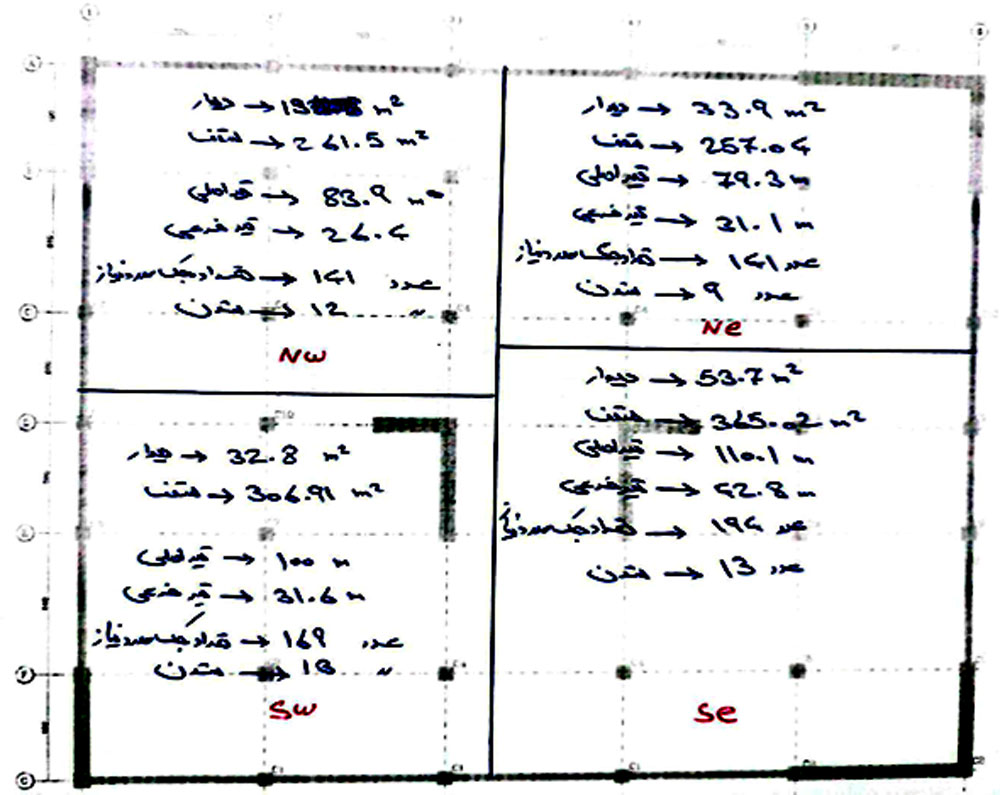 دیوار → 19 m²
سقف → 261.5 m²
تیر اصلی → 83.9 m
تیر فرعی → 26.4
تعداد جک مورد نیاز → 141 عدد
ستون → 12 "
NW
دیوار → 33.9 m²
سقف → 257.04
تیر اصلی → 79.3 m
تیر فرعی → 31.1 m
تعداد جک مورد نیاز → 141 عدد
ستون → 9 عدد
Ne
دیوار → 32.8 m²
سقف → 306.91 m²
تیر اصلی → 100 m
تیر فرعی → 31.6 m
تعداد جک مورد نیاز → 169 عدد
ستون → 18 "
SW
دیوار → 53.7 m²
سقف → 365.02 m²
تیر اصلی → 110.1 m
تیر فرعی → 42.8 m
تعداد جک مورد نیاز → 194 عدد
ستون → 13 عدد
Se